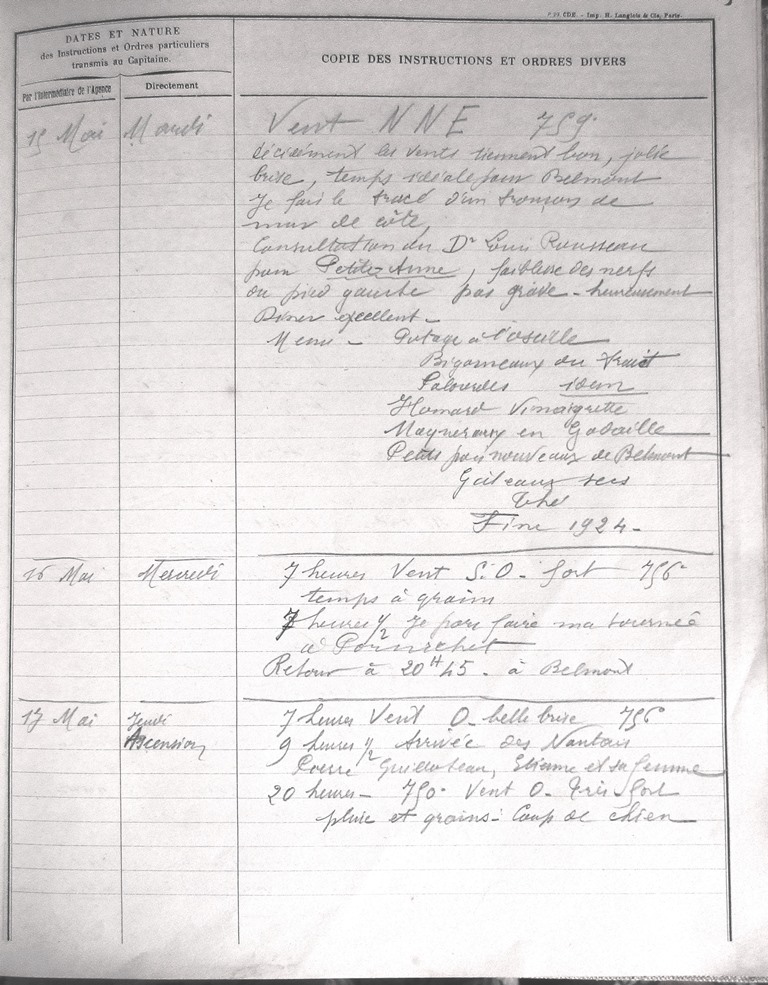 CDE. - Imp. H. Langlois & Cie, Paris.
DATES ET NATURE
des Instructions et Ordres particuliers
transmis au Capitaine.
Par l'Intermédiaire de l'Agence
Directement
COPIE DES INSTRUCTIONS ET ORDRES DIVERS
15 Mai Mardi Vent NNE 759.
décidément les vents tiennent bon, jolie
brise, temps idéale pour Belmont
Je fais le tracé d'un tronçons de
mur de côté,
Consultation du Dr Louis Rousseau
pour Petite Anne, faiblesse des nerfs
du pied gauche pas grave - heureusement
Diner excellent -
Menu - Potage à l'oseille
Bigorneaux du trait
Palourdes idem
Homard Vinaigrette
Maquereaux en Godaille
Petits pois nouveaux de Belmont
Gâteaux secs
Thé
Fine 1924 -
16 Mai Mercredi 7 heures Vent S.O. fort 756
temps à grains
7 heures 1/2 Je pars faire ma tournée
à Pornichet
Retour à 20H45 - à Belmont
17 Mai Jeudi 7 heures Vent O. belle brise 756
Ascension 9 heures 1/2 Arrivée des Nantais
Pierre, Etienne et sa femme
20 heures - 750. Vent O. très fort
pluie et grains - Coup de chien